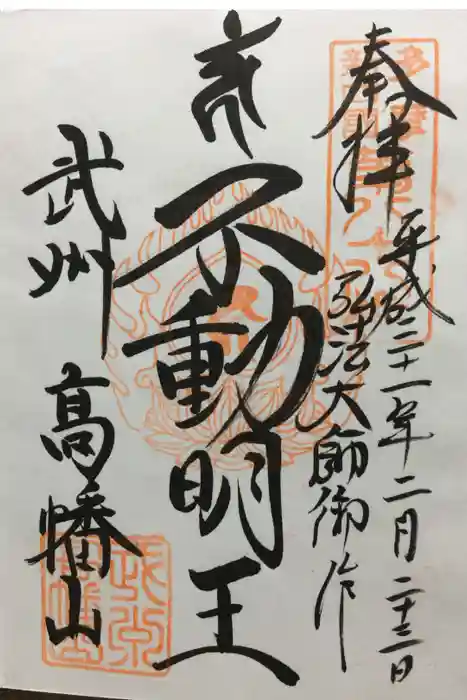 奉拝
平成二十一年二月二十三日
弘法大師御作
不動明王
武州
高幡山